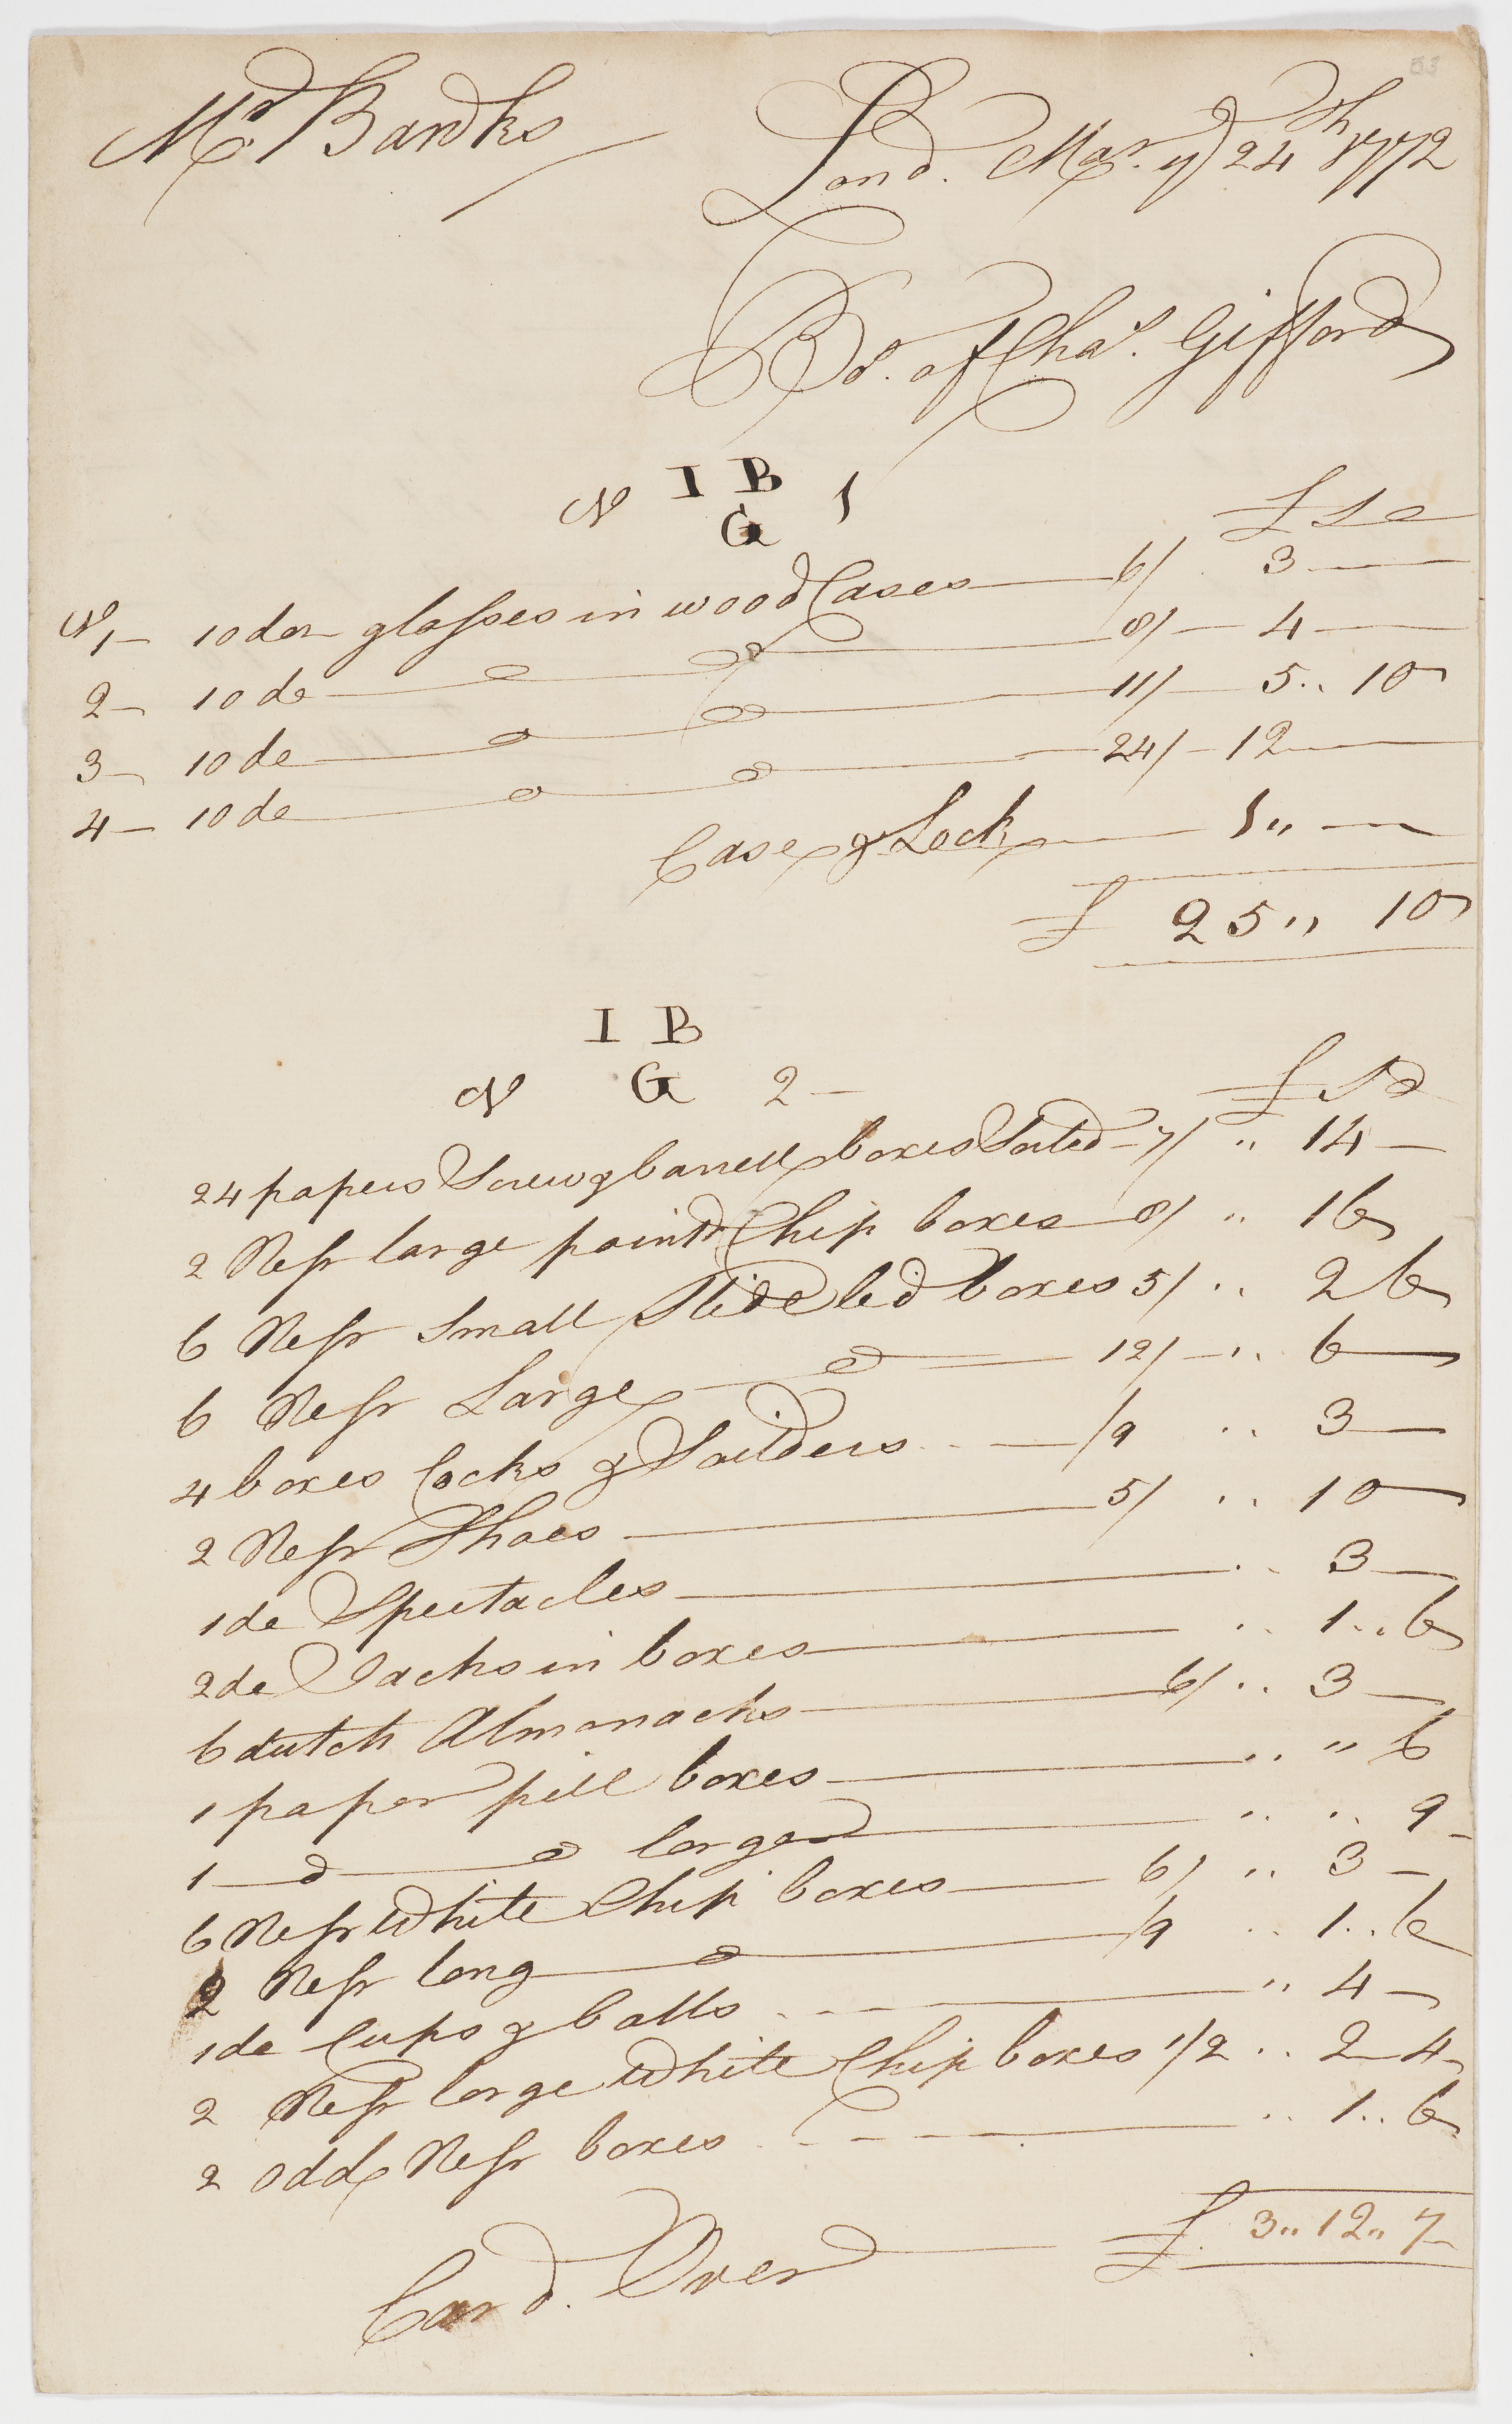 53
Mr. Banks
Lond. Mar. ye 24th 1772
Bot. of Chas. Gifford
I B
N G 1
£ S d
No 1 — 10 doz glasses in wood Cases — 6/ 3 —
2 — 10 do — o — o — 8/ — 4 —
3 — 10 do — o — o — 11/ — 5 .. 10
4 — 10 do — o — o — 24/ — 12 —
Case & Lock — 1 ,, —
£ 25 ,, 10
I B
N G 2 —
£ S d
24 papers Screw & barrell boxes Sorted — 7/ ,, 14 —
2 Nests large paintd Chip boxes — 8/ ,, 16
6 Nests Small Slide lid boxes 5/ .. 2 6
6 Nests Large — o — 12/ — .. 6 —
4 boxes Cocks & — /9 .. 3 —
2 Nests Shoes — 5/ .. 10 —
1 do Spectacles — .. 3 —
2 do Jacks in boxes — .. 1 .. 6
6 dutch Almanacks — 6/ .. 3 —
1 paper pill boxes — .. ,, 6
1 — o — o larger — .. .. 9
6 Nests White Chip boxes — 6/ .. 3 —
2 Nests long — o — /9 .. 1 .. 6
1 do Cups & balls — ,, 4 —
2 Nests large White Chip boxes 1/2 .. 2 4
2 odd Nests boxes — .. 1 .. 6
£ 3 ,, 12 ,, 7
Card. Over —